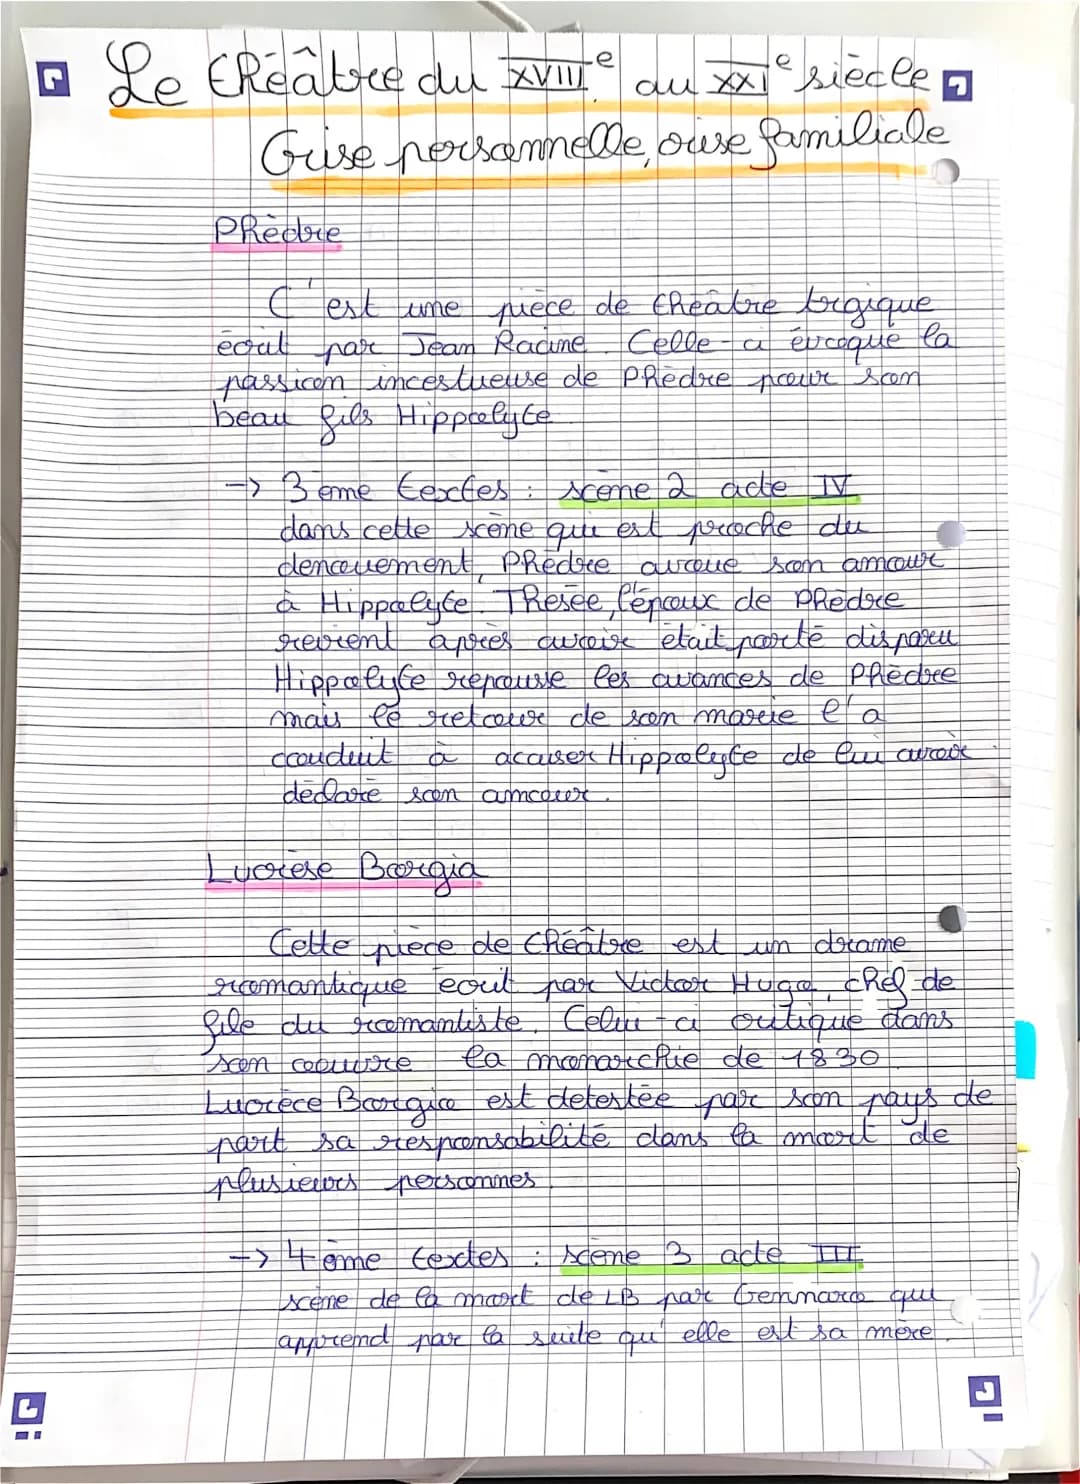 Le théâtre du XVIIIe au XXIe siècle
Crise personnelle, crise familiale
Phèdre
C'est une pièce de théâtre trgique
écrit par Jean Racine. Celle-ci évoque la
passion incestueuse de Phèdre pour son
beau fils Hippolyte
-> 3 ème textes : scène 2 acte IV
dans cette scène qui est proche du
denouement, Phèdre avoue son amour
à Hippolyte. Thesée, l'époux de Phèdre
revient après avoir était porté disparu
Hippolyte repousse les avances de Phèdre
mais le retour de son marie l'a
conduit à acuser Hippolyte de lui avoir
déclaré son amour.
Lucrèse Borgia
Cette pièce de théâtre est un drame
romantique écrit par Victor Hugo, chef de
file du romantiste. Celui-ci critique dans
son oeuvre la monarchie de 1830
Lucrèce Borgia est detestée par son pays de
part sa responsabilité dans la mort de
plusieurs personnes.
-> 4 ème textes : scène 3 acte III
scène de la mort de LB par Gennaro qui
apprend par la suite qu'elle est sa mère.